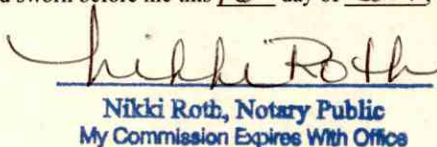 d sworn before me this day of
Nikki Roth
Nikki Roth, Notary Public
My Commission Expires With Office